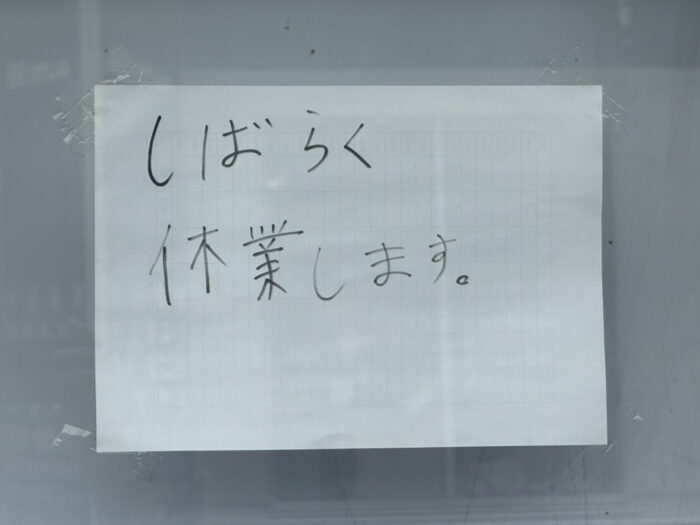 しばらく
休業します。